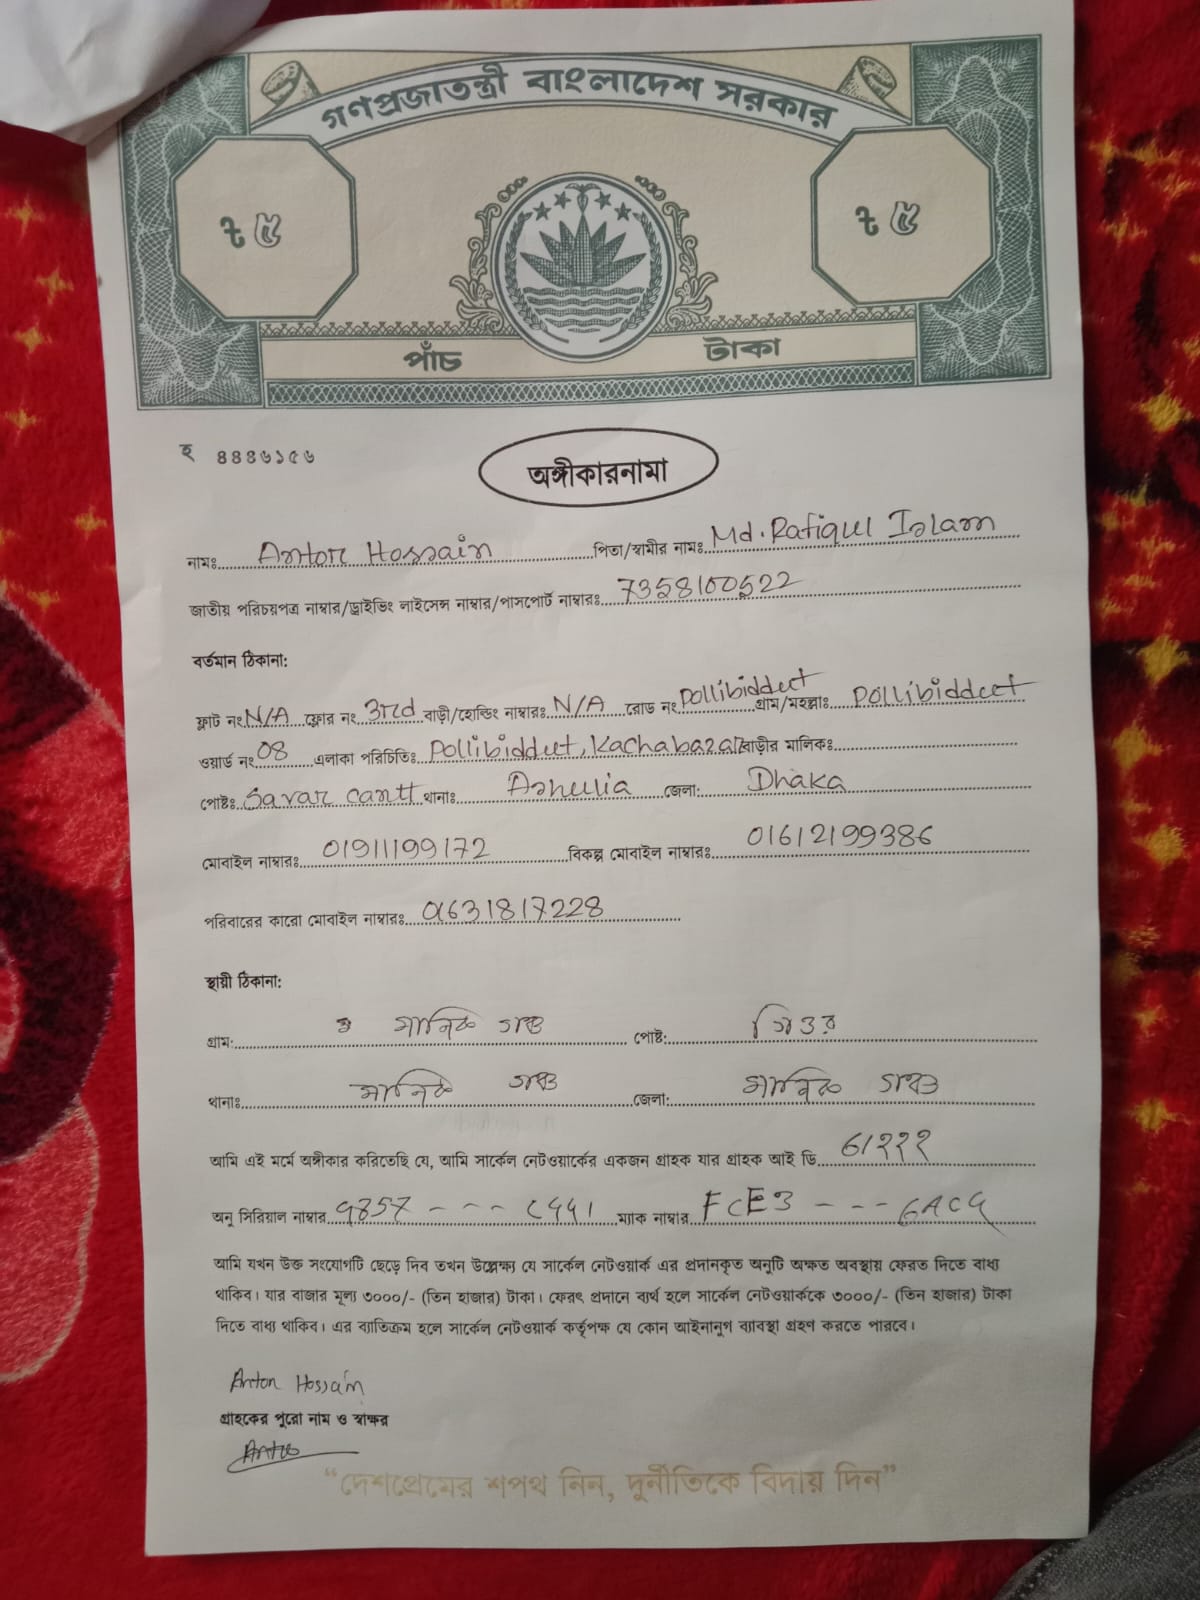 গণপ্রজাতন্ত্রী বাংলাদেশ সরকার
ট ৫ ট ৫
পাঁচ টাকা
হ ৪৪৪৬১৫৬
অঙ্গীকারনামা
নামঃ Anton Hossain পিতা/স্বামীর নামঃ Md. Rafiqul Islam
জাতীয় পরিচয়পত্র নাম্বার/ড্রাইভিং লাইসেন্স নাম্বার/পাসপোর্ট নাম্বারঃ 7358100522
বর্তমান ঠিকানা:
ফ্লাট নং N/A ফ্লোর নং 3rd বাড়ী/হোল্ডিং নাম্বারঃ N/A রোড নং Pollibiddut গ্রাম/মহল্লাঃ Pollibiddut
ওয়ার্ড নং 08 এলাকা পরিচিতিঃ Pollibiddut, Kachabazar বাড়ীর মালিকঃ
পোষ্টঃ Savar cantt থানাঃ Ashulia জেলা: Dhaka
মোবাইল নাম্বারঃ 01911199172 বিকল্প মোবাইল নাম্বারঃ 01612199386
পরিবারের কারো মোবাইল নাম্বারঃ 01631817228
স্থায়ী ঠিকানা:
গ্রাম: মানিক গঞ্জ পোষ্ট: ঘিওর
থানাঃ মানিক গঞ্জ জেলা: মানিক গঞ্জ
আমি এই মর্মে অঙ্গীকার করিতেছি যে, আমি সার্কেল নেটওয়ার্কের একজন গ্রাহক যার গ্রাহক আই ডি
অনু সিরিয়াল নাম্বার ম্যাক নাম্বার FCE3 - - - 6AC9
আমি যখন উক্ত সংযোগটি ছেড়ে দিব তখন উল্লেক্ষ্য যে সার্কেল নেটওয়ার্ক এর প্রদানকৃত অনুটি অক্ষত অবস্থায় ফেরত দিতে বাধ্য
থাকিব। যার বাজার মূল্য ৩০০০/- (তিন হাজার) টাকা। ফেরৎ প্রদানে ব্যর্থ হলে সার্কেল নেটওয়ার্ককে ৩০০০/- (তিন হাজার) টাকা
দিতে বাধ্য থাকিব। এর ব্যাতিক্রম হলে সার্কেল নেটওয়ার্ক কর্তৃপক্ষ যে কোন আইনানুগ ব্যাবস্থা গ্রহণ করতে পারবে।
Anton Hossain
গ্রাহকের পুরো নাম ও স্বাক্ষর
“দেশপ্রেমের শপথ নিন, দুর্নীতিকে বিদায় দিন”